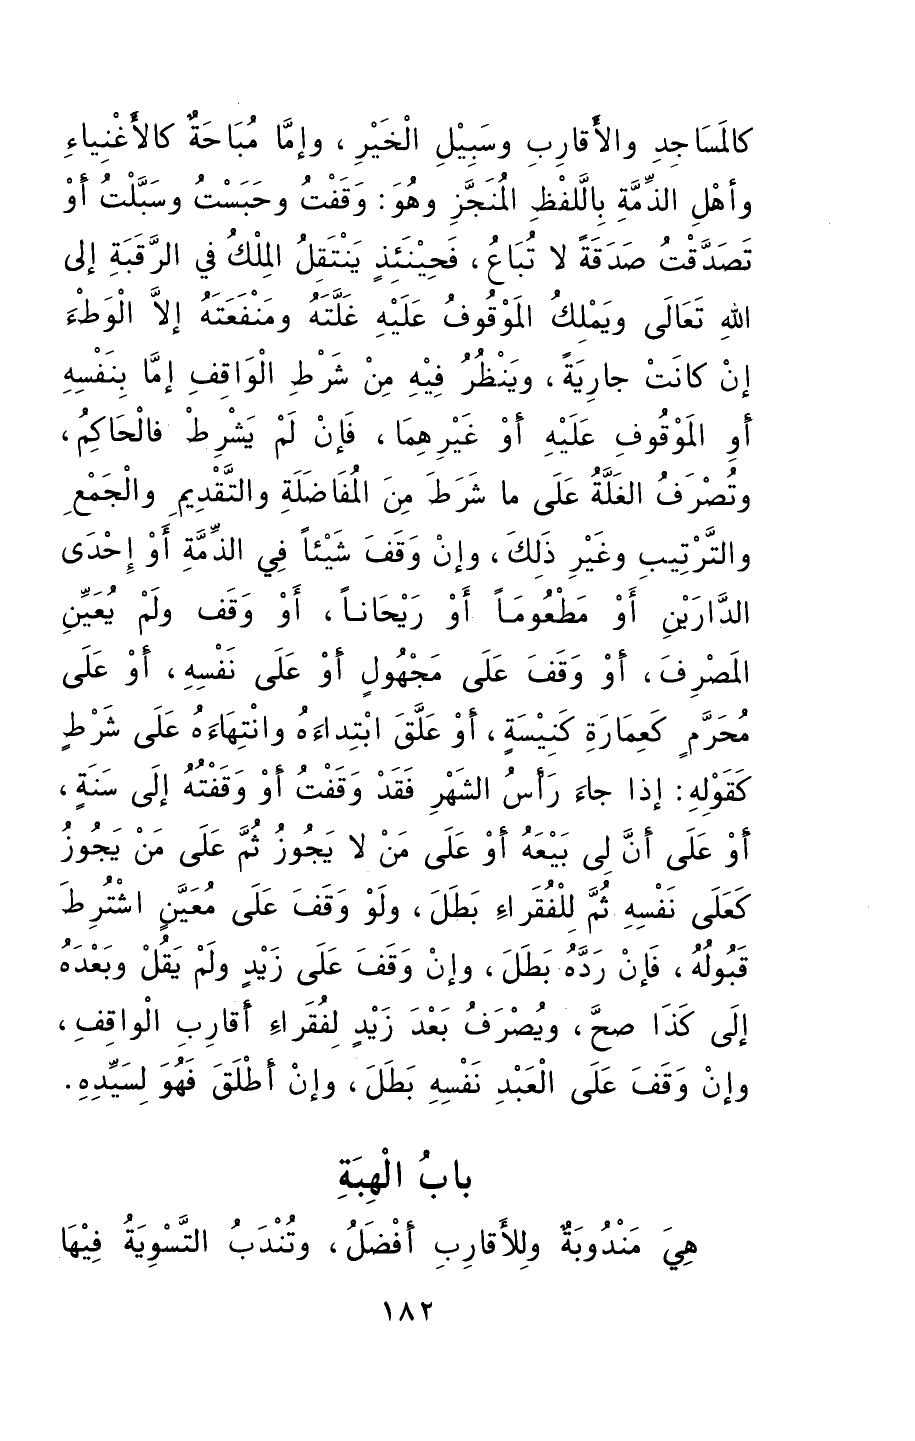 كالمَسَاجِدِ والأَقارِبِ وسَبِيْلِ الْخَيْرِ ، وإمَّا مُبَاحَةٌ كالأَغْنِياءِ
وأهْلِ الذِّمَّةِ بِاللَّفْظِ المُنَجَّزِ وهُوَ: وَقَفْتُ وحَبَسْتُ وسَبَّلْتُ أوْ
تَصَدَّقْتُ صَدَقَةً لا تُبَاعُ ، فَحِيْنَئِذٍ يَنْتَقِلُ المِلْكُ في الرَّقَبَةِ إلى
اللهِ تَعَالَى ويَمْلِكُ المَوْقُوفُ عَلَيْهِ غَلَّتَهُ ومَنْفَعَتَهُ إلاَّ الْوَطْءَ
إنْ كانَتْ جارِيَةً ، ويَنْظُرُ فِيْهِ مِنْ شَرْطِ الْوَاقِفِ إمَّا بِنَفْسِهِ
أوِ المَوْقُوفِ عَلَيْهِ أوْ غَيْرِهِمَا ، فَإنْ لَمْ يَشْرِطْ فالْحَاكِمُ ،
وتُصْرَفُ الغَلَّةُ عَلَى ما شَرَطَ مِنَ المُفَاضَلَةِ والتَّقْدِيمِ والْجَمْعِ
والتَّرْتِيبِ وغَيْرِ ذَلِكَ ، وإنْ وَقَفَ شَيْئاً فِي الذِّمَّةِ أَوْ إِحْدَى
الدَّارَيْنِ أَوْ مَطْعُومَاً أَوْ رَيْحَاناً ، أَوْ وَقَف ولَمْ يُعَيِّنِ
المَصْرِفَ ، أوْ وَقَفَ عَلَى مَجْهُولٍ أوْ عَلَى نَفْسِهِ ، أوْ عَلَى
مُحَرَّمٍ كَعِمَارَةِ كَنِيْسَةٍ ، أوْ عَلَّقَ ابْتِداءَهُ وانْتِهَاءَهُ عَلَى شَرْطٍ
كَقَوْلِهِ: إذا جاءَ رَأْسُ الشهْرِ فَقَدْ وَقَفْتُ أوْ وَقَفْتُهُ إلَى سَنَةٍ ،
أوْ عَلَى أنَّ لِى بَيْعَهُ أوْ عَلَى مَنْ لا يَجُوزُ ثُمَّ عَلَى مَنْ يَجُوزُ
كَعَلَى نَفْسِهِ ثُمَّ لِلْفُقَراءِ بَطَلَ ، ولَوْ وَقَفَ عَلَى مُعَيَّنٍ اشْتُرِطَ
قَبُولُهُ ، فَإنْ رَدَّهُ بَطَلَ ، وإنْ وَقَفَ عَلَى زَيْدٍ ولَمْ يَقُلْ وبَعْدَهُ
إلَى كَذَا صحَّ ، ويُصْرَفُ بَعْدَ زَيْدٍ لِفُقَراءِ أقارِبِ الْواقِفِ ،
وإنْ وَقَفَ عَلَى الْعَبْدِ نَفْسِهِ بَطَلَ ، وإنْ أطْلَقَ فَهُوَ لِسَيِّدِهِ .
بابُ الْهِبَةِ
هِيَ مَنْدُوبَةٌ ولِلأَقارِبِ أفْضَلُ ، وتُنْدَبُ التَّسْوِيَةُ فِيْهَا
١٨٢